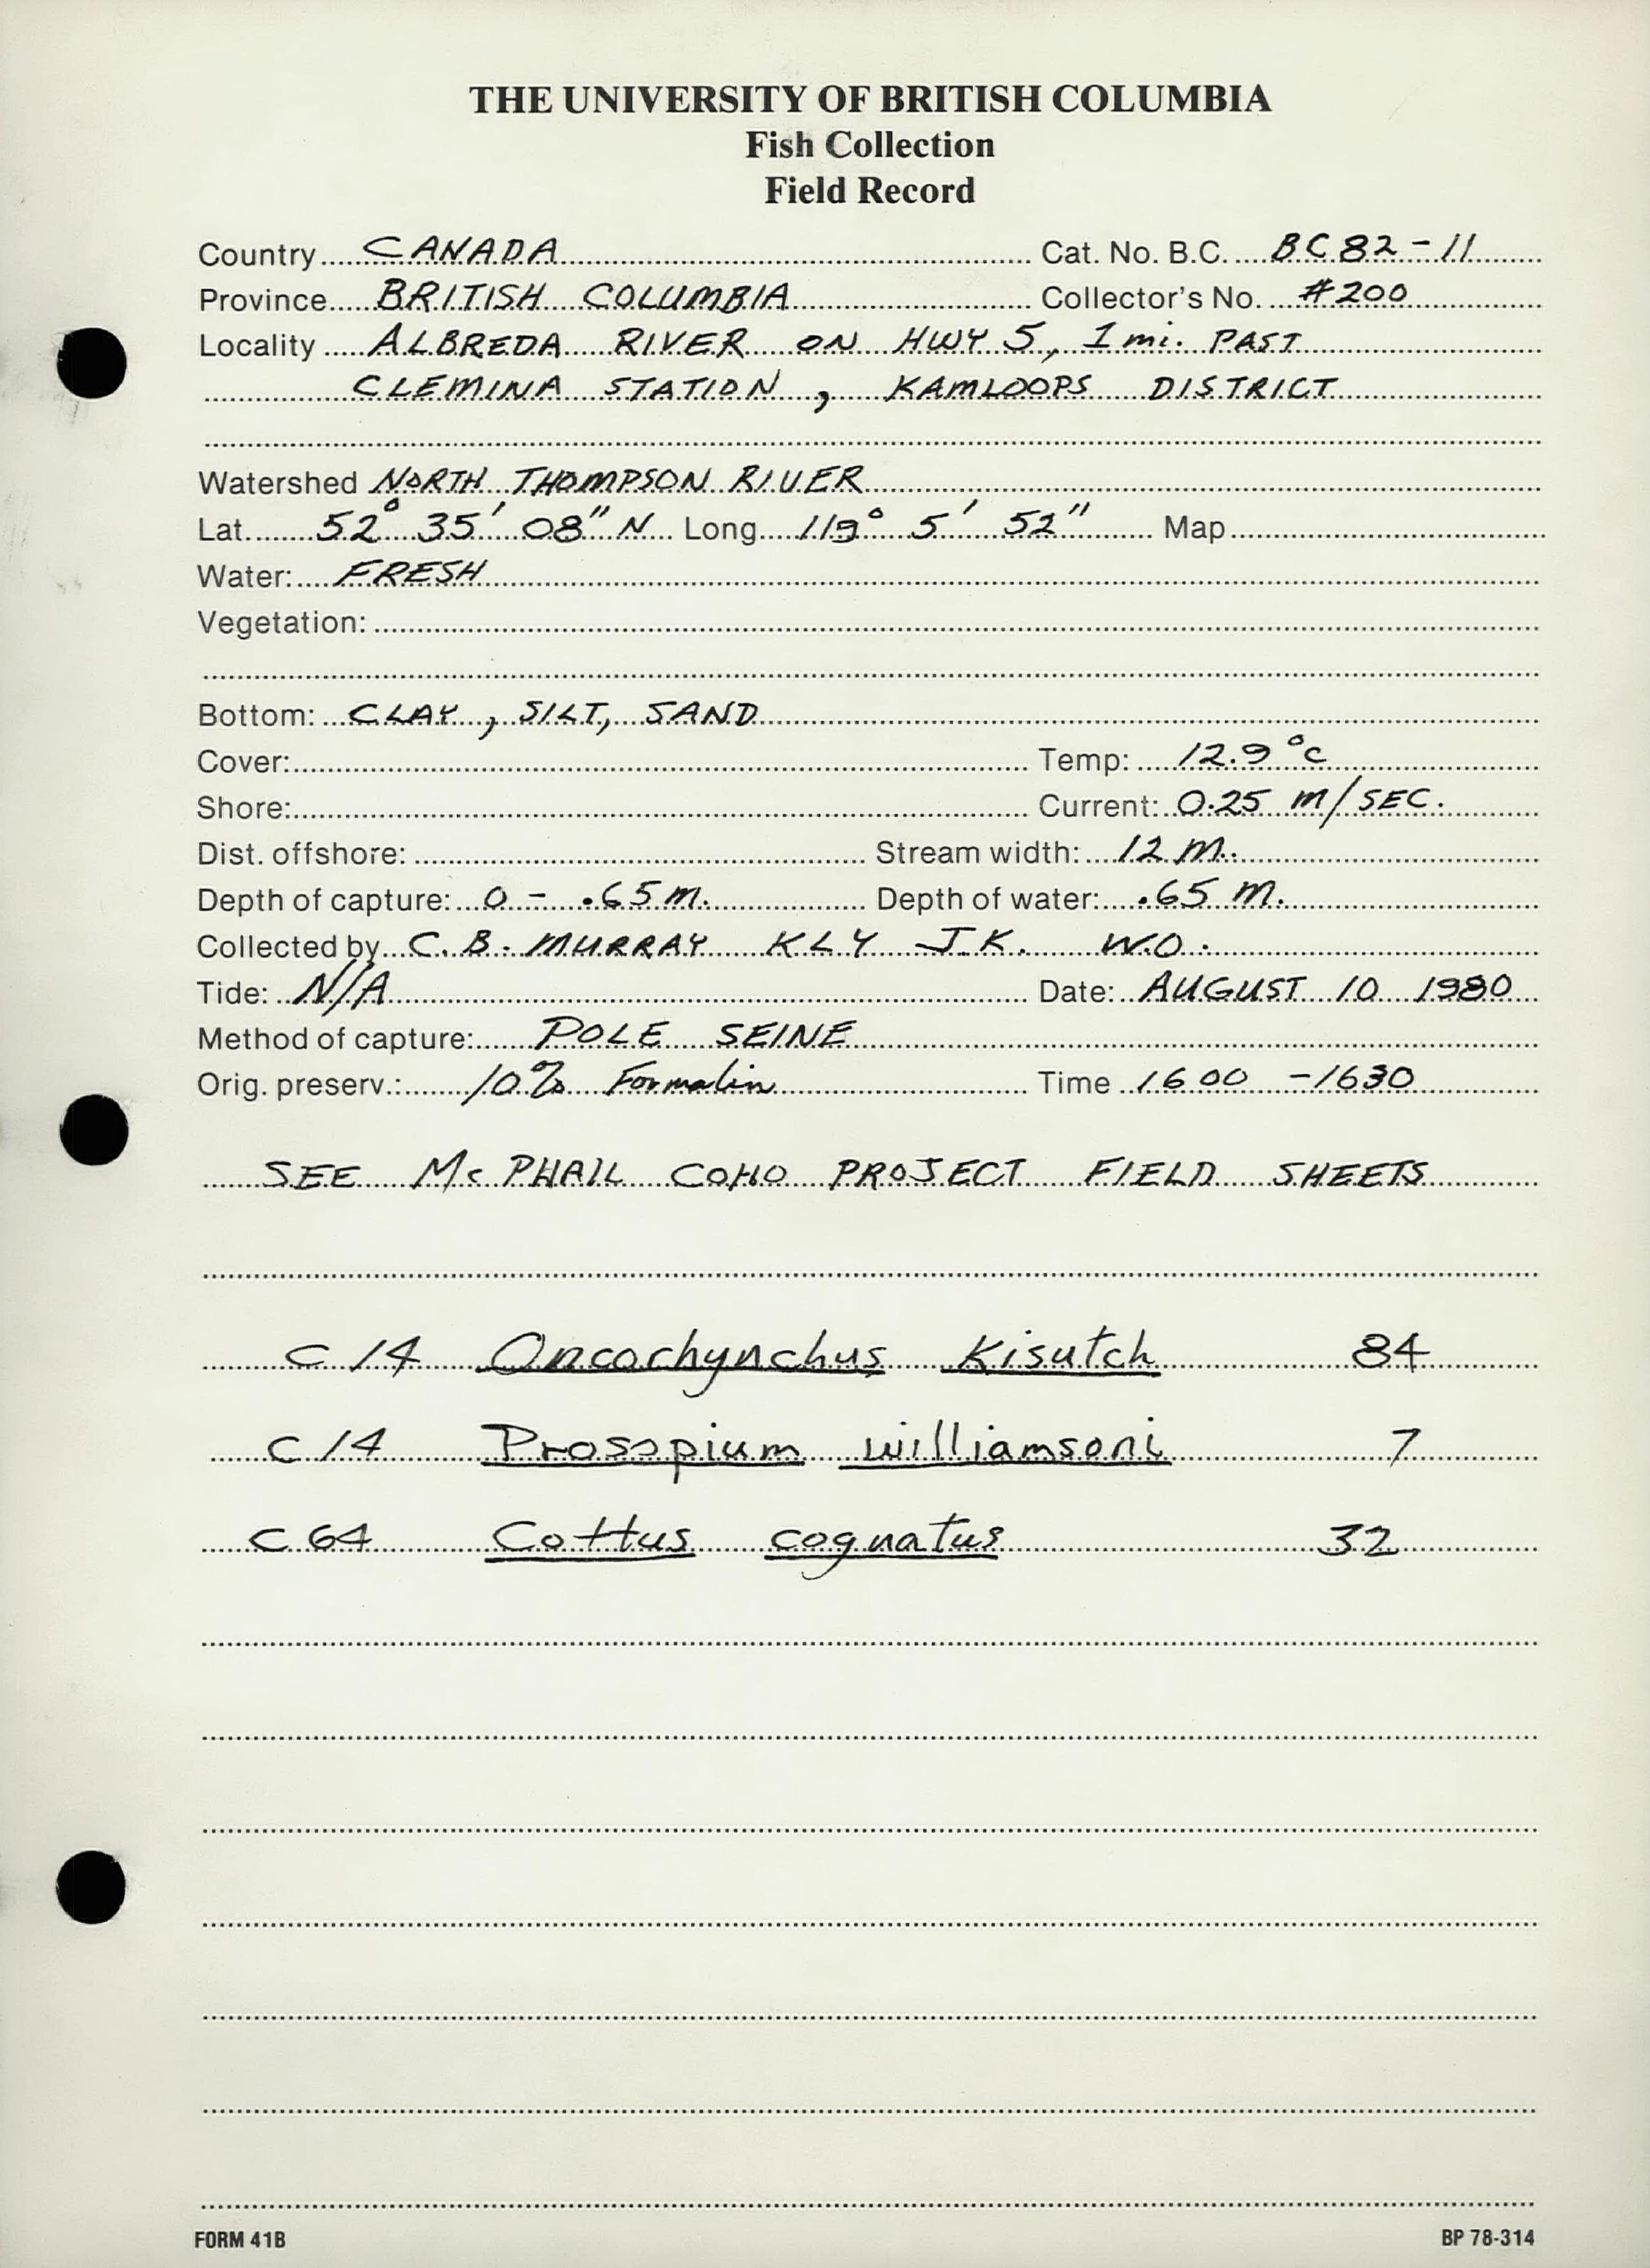 THE UNIVERSITY OF BRITISH COLUMBIA
Fish Collection
Field Record
Country CANADA Cat. No. B.C. BC 82-11
Province BRITISH COLUMBIA Collector's No. #200
Locality ALBREDA RIVER ON HWY 5, 1 mi. PAST
CLEMINA STATION, KAMLOOPS DISTRICT
Watershed NORTH THOMPSON RIVER
Lat. 52° 35' 08" N Long 119° 5' 52" Map
Water: FRESH
Vegetation:
Bottom: CLAY, SILT, SAND
Cover: Temp: 12.9 °C
Shore: Current: 0.25 m/SEC.
Dist. offshore: Stream width: 12 m.
Depth of capture: 0 - .65 m. Depth of water: .65 m.
Collected by C. B. MURRAY KLY J.K. W.O.
Tide: N/A Date: AUGUST 10 1980
Method of capture: POLE SEINE
Orig. preserv.: 10% Formalin Time 1600 - 1630
SEE McPHAIL COHO PROJECT FIELD SHEETS
C 14 Oncorhynchus Kisutch 84
C 14 Prosopium williamsoni 7
C 64 Cottus cognatus 32
FORM 41B BP 78-314